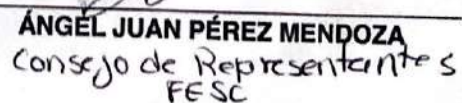 ÁNGEL JUAN PÉREZ MENDOZA
Consejo de Representantes
FESC